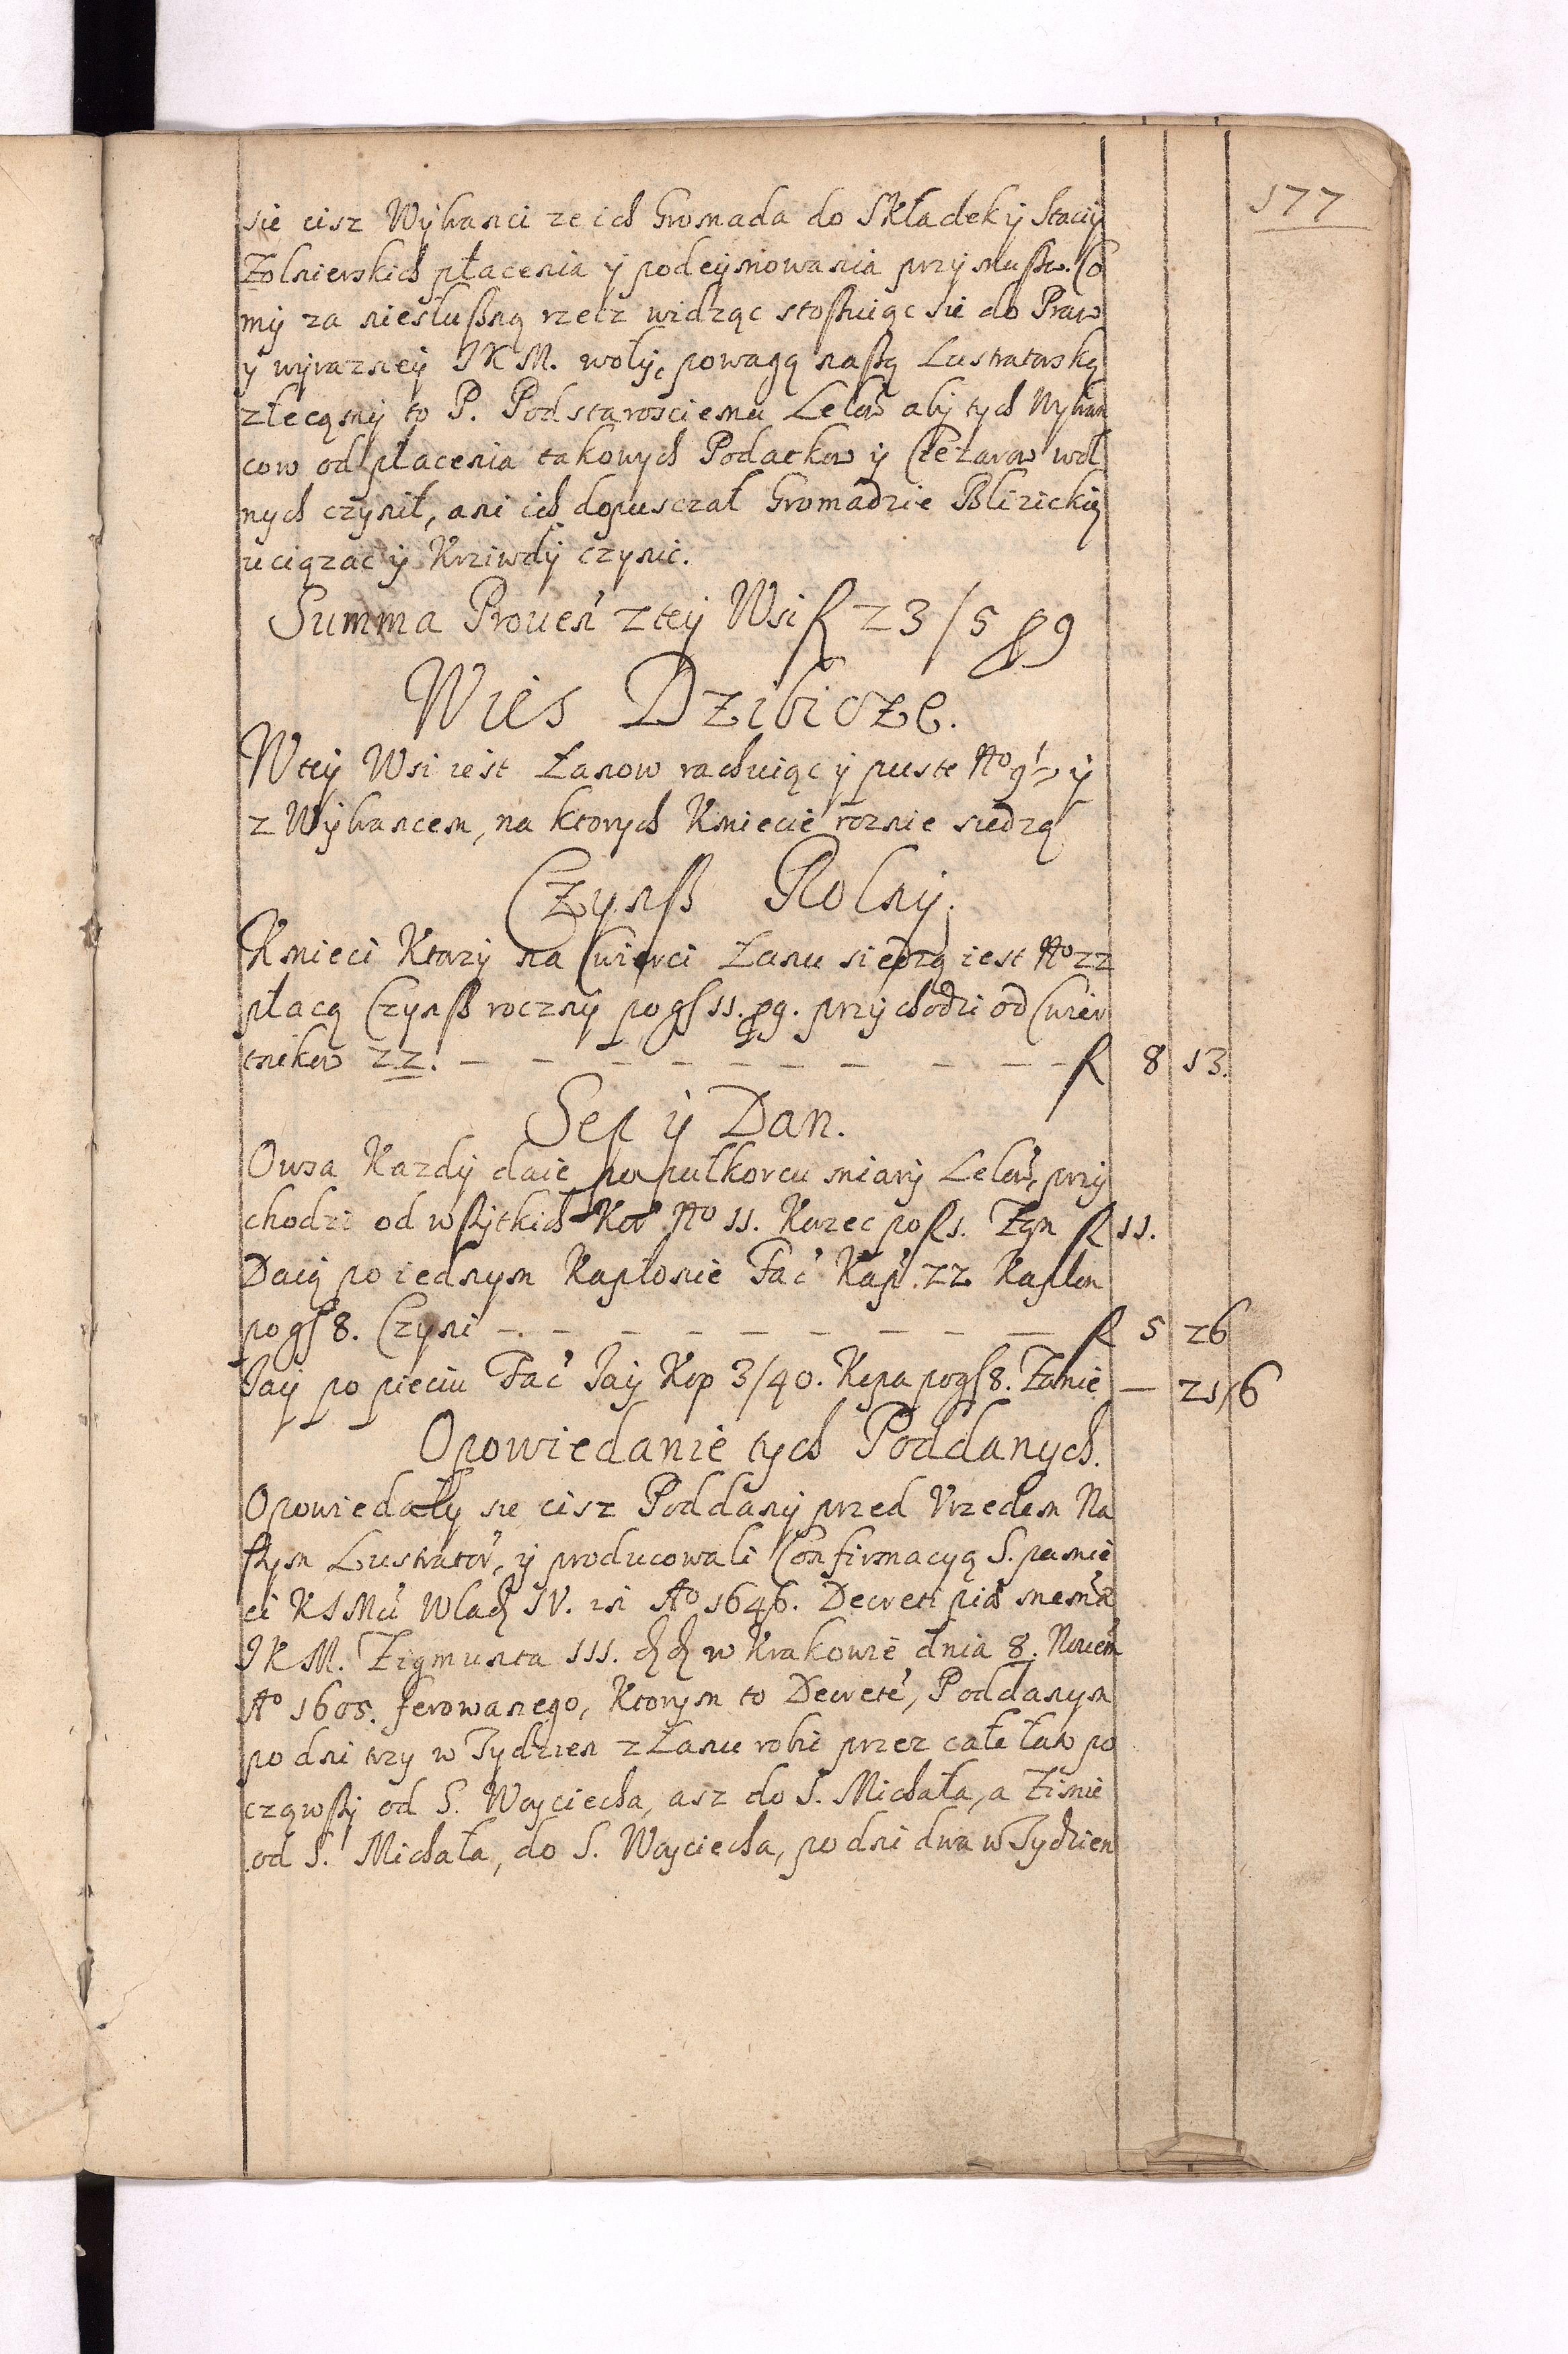 177
sie cisz Wybranci ze ich Gromada do Składek y Staciy
Zolnierskich płacenia y podeymowania przymußa. Co
my za niesłußną rzecz widząc stoßuiąc sie do Praw
y wyrazney JKM. woly, powagą naßą Lustratorską
zlecamy to P. Podstarosciemu Lelow aby tych Wybran
cow od płacenia takowych Podatkow y Ciezarow wol
nych czynił, ani ich dopusczał Gromadzie Blizickiey
uciązac y Krziwdy czynic.
Summa Proven z tey Wsi f 23/5 ₰ 9
Wies Dzibicze.
W tey Wsi iest Łanow rachuiąc y puste No 9½ y
z Wybrancem, na ktorych Kmiecie roznie siedzą
Czynß Rolny.
Kmieci Ktorzy na Cwierci Łanu siedzą iest No 22
płacą Czynß roczny po gſ 11. ₰ 9. przychodzi od Cwier
tnikow 22. — — — — — — — — — f 8 13.
Sep y Dan.
Owsa Kazdy daie po pułkorcu miary Lelow, przy
chodzi od wßytkich Kor No 11. Korzec po f 1. Zyn f 11.
Daią po iednym Kapłonie Fac Kap. 22 Kapłon
po gſ 8. Czyni — — — — — — — — — f 5 26
Jay po pieciu Fac Jay Kop 3/40. Kopa po gſ 8. Zamie — 21/6
Opowiedanie tych Poddanych.
Opowiedały sie cisz Poddany przed Vrzedem Na
ßym Lustrator, y producowali Confirmacyą S. pamie
ci KJMci Wlad IV. in Ao 1646. Decreti piæ memoriæ
JKM. Zigmunta III. dd w Krakowie dnia 8. Novem
Ao 1605. ferowanego, Ktorym to Decrete, Poddanym
po dni trzy w Tydzien z Łanu robic przez całe lato po
cząwßy od S. Woyciecha, asz do S. Michała, a Zimie
od S. Michała, do S. Woyciecha, po dni dwa w Tydzien